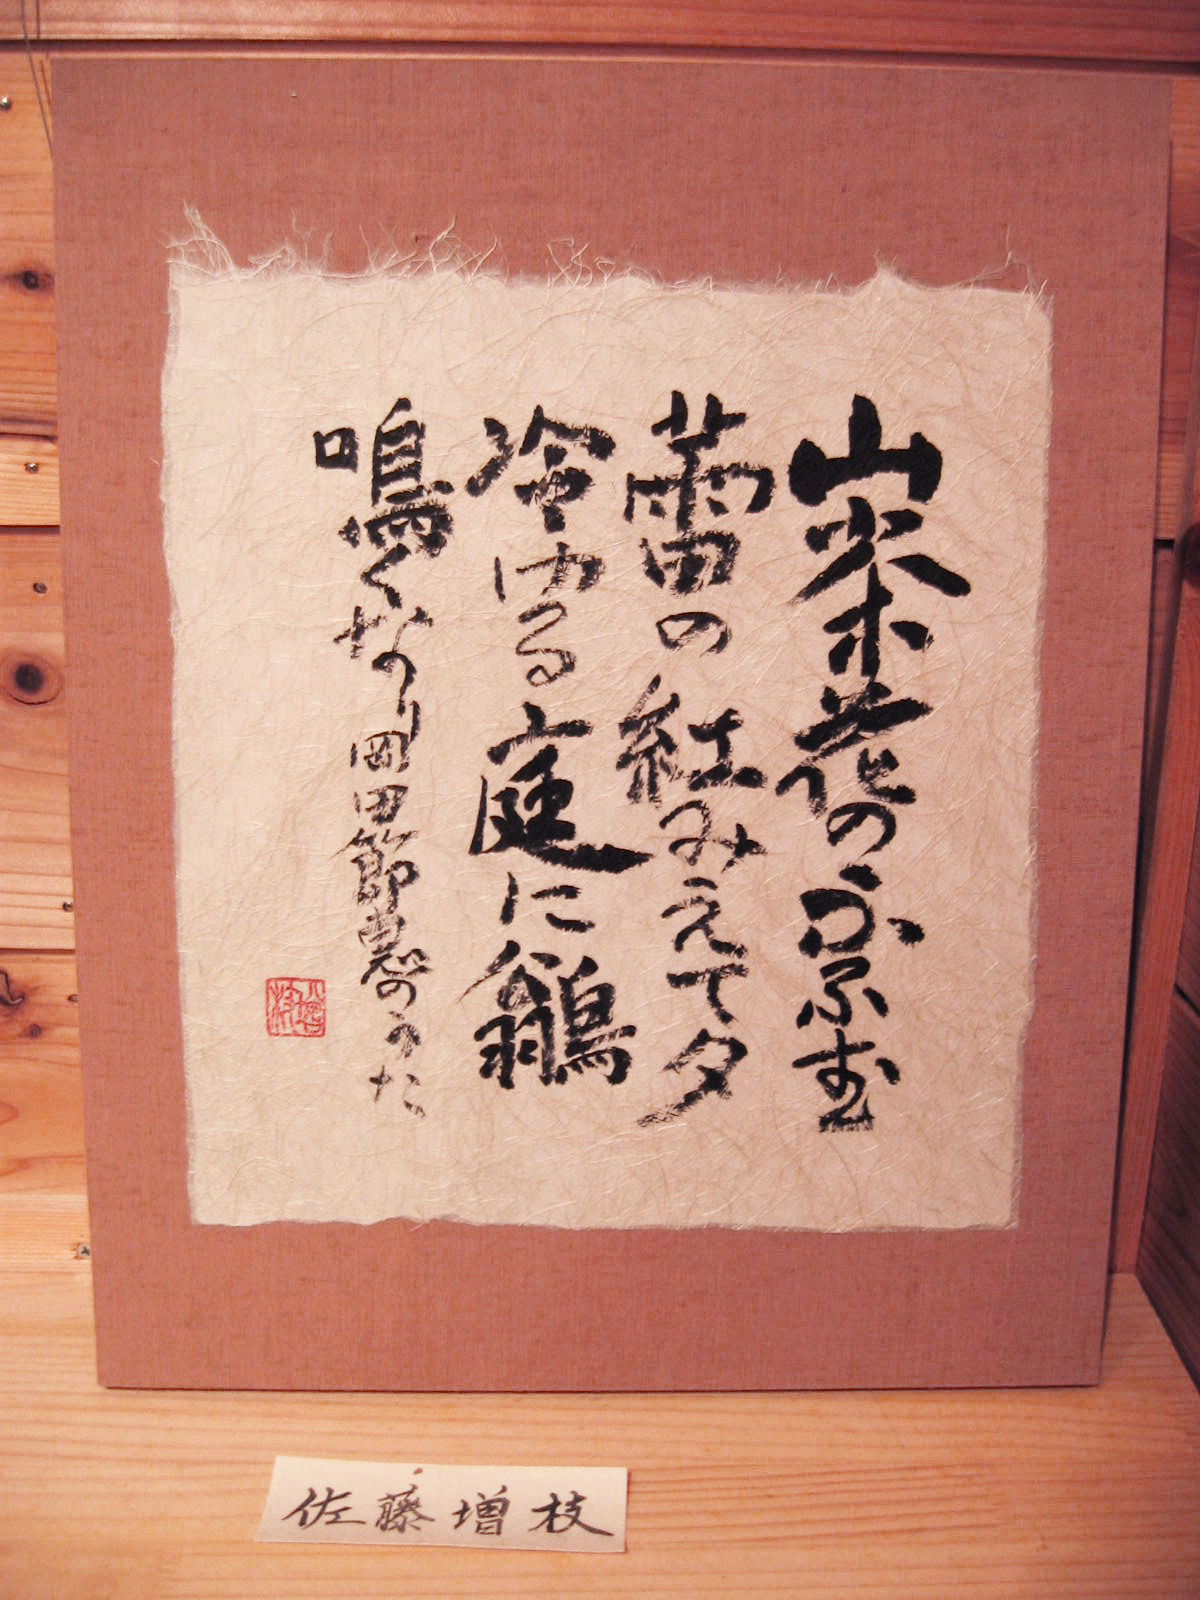 山茶花のふふむ
蕾の紅みえて夕
冷ゆる庭に鶲
鳴くなり 岡田節 のうた
増枝
佐藤増枝